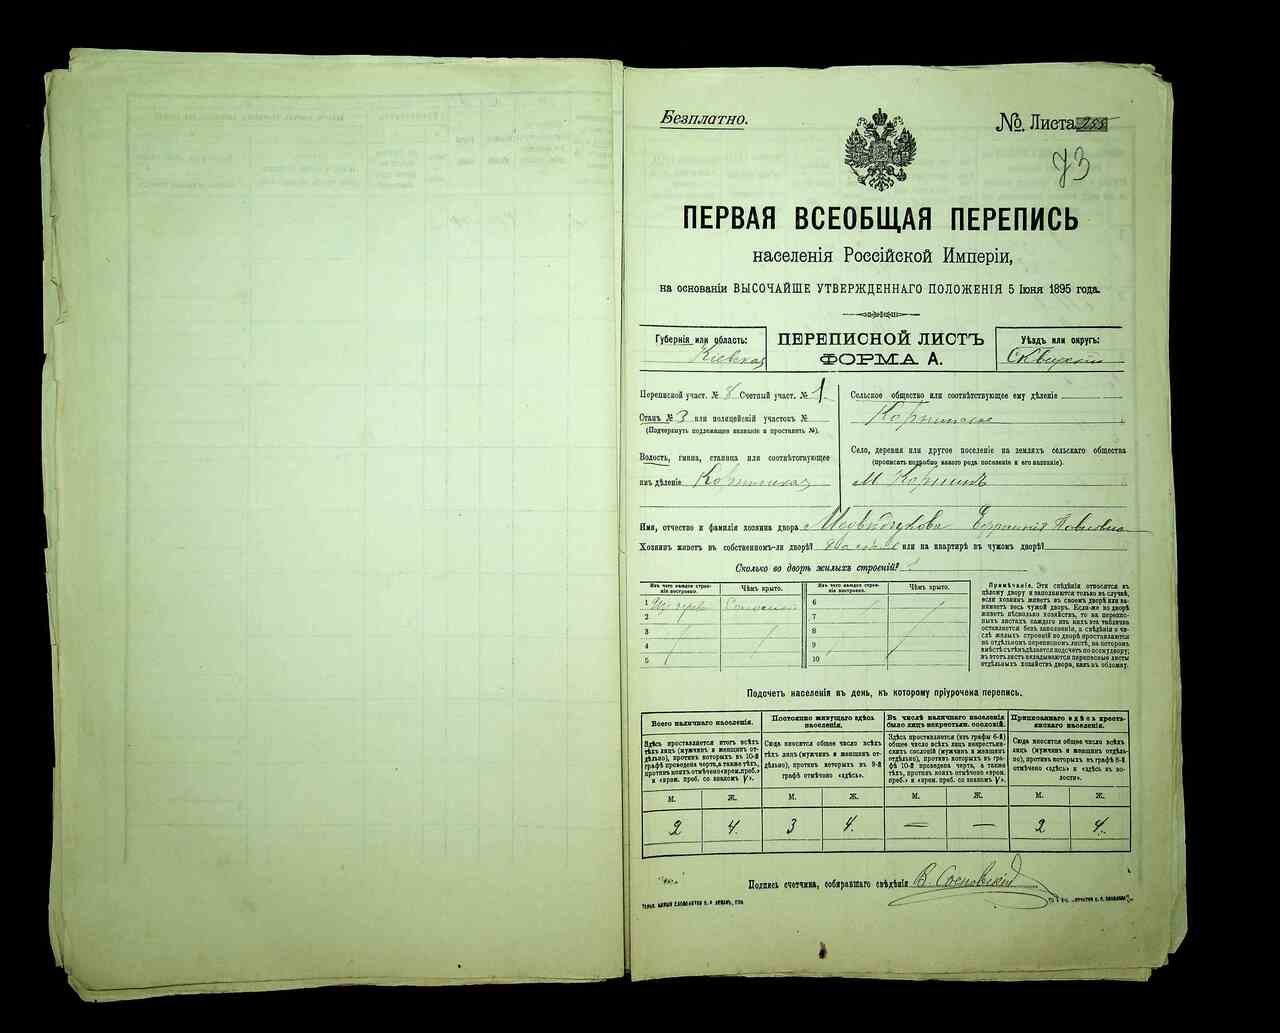 Безплатно.
№. Листа 255
73
ПЕРВАЯ ВСЕОБЩАЯ ПЕРЕПИСЬ
населенія Россійской Имперіи,
на основаніи ВЫСОЧАЙШЕ УТВЕРЖДЕННАГО ПОЛОЖЕНІЯ 5 Іюня 1895 года.
Губернія или область:
Кіевская
ПЕРЕПИСНОЙ ЛИСТЪ
ФОРМА А.
Уѣздъ или округъ:
Сквирскій
Переписной участ. № 8 Счетный участ. № 1
Станъ № 3 или полицейскій участокъ №
(Подчеркнуть подлежащее названіе и проставить №).
Волость, гмина, станица или соотвѣтствующее
имъ дѣленіе Корнинская
Сельское общество или соотвѣтствующее ему дѣленіе
Корнинское
Село, деревня или другое поселеніе на земляхъ сельскаго общества
(прописать подробно какого рода поселеніе и его названіе).
М. Корнинъ
Имя, отчество и фамилія хозяина двора Павловна
Хозяинъ живетъ въ собственномъ-ли дворѣ? или на квартирѣ въ чужомъ дворѣ?
Сколько во дворѣ жилыхъ строеній? 1
Изъ чего каждое строеніе построено.
Чѣмъ крыто.
Изъ чего каждое строеніе построено.
Чѣмъ крыто.
1 Изъ дерев Соломой
2
3
4
5
6
7
8
9
10
Примѣчаніе. Эти свѣдѣнія относятся къ
цѣлому двору и заполняются только въ случаѣ,
если хозяинъ живетъ въ своемъ дворѣ или занимаетъ
весь чужой дворъ. Если-же во дворѣ
живетъ нѣсколько хозяйствъ, то на переписныхъ
листахъ каждаго изъ нихъ эта табличка
оставляется безъ заполненія, а свѣдѣнія о числѣ
жилыхъ строеній во дворѣ проставляются
на отдѣльномъ переписномъ листѣ, на которомъ
вмѣстѣ съ тѣмъ дѣлается подсчетъ по всему двору;
въ этотъ листъ вкладываются переписные листы
отдѣльныхъ хозяйствъ двора, какъ въ обложку.
Подсчетъ населенія въ день, къ которому пріурочена перепись.
Всего наличнаго населенія.
Постоянно живущаго здѣсь населенія.
Въ числѣ наличнаго населенія было лицъ некрестьян. сословій.
Приписаннаго здѣсь крестьянскаго населенія.
Здѣсь проставляется итогъ всѣхъ
лицъ (мужчинъ и женщинъ отдѣльно),
противъ которыхъ въ 10-й
графѣ проведена черта, а также тѣхъ,
противъ коихъ отмѣчено «врем. преб.»
и «врем. преб. со знакомъ V».
Сюда вносится общее число всѣхъ
тѣхъ лицъ (мужчинъ и женщинъ отдѣльно),
противъ которыхъ въ 9-й
графѣ отмѣчено «здѣсь».
Здѣсь проставляется (изъ графы 6-й)
общее число всѣхъ лицъ некрестьянскихъ
сословій (мужчинъ и женщинъ
отдѣльно), противъ которыхъ въ графѣ
10-й проведена черта, а также
тѣхъ, противъ коихъ отмѣчено «врем.
преб.» и «врем. преб. со знакомъ V».
Сюда вносится общее число всѣхъ
лицъ (мужчинъ и женщинъ отдѣльно),
противъ которыхъ въ графѣ 8-й
отмѣчено «здѣсь» и «здѣсь въ волости».
М. Ж. М. Ж. М. Ж. М. Ж.
2 4. 3 4. — — 2 4.
Подпись счетчика, собиравшаго свѣдѣнія В. Сосновскій